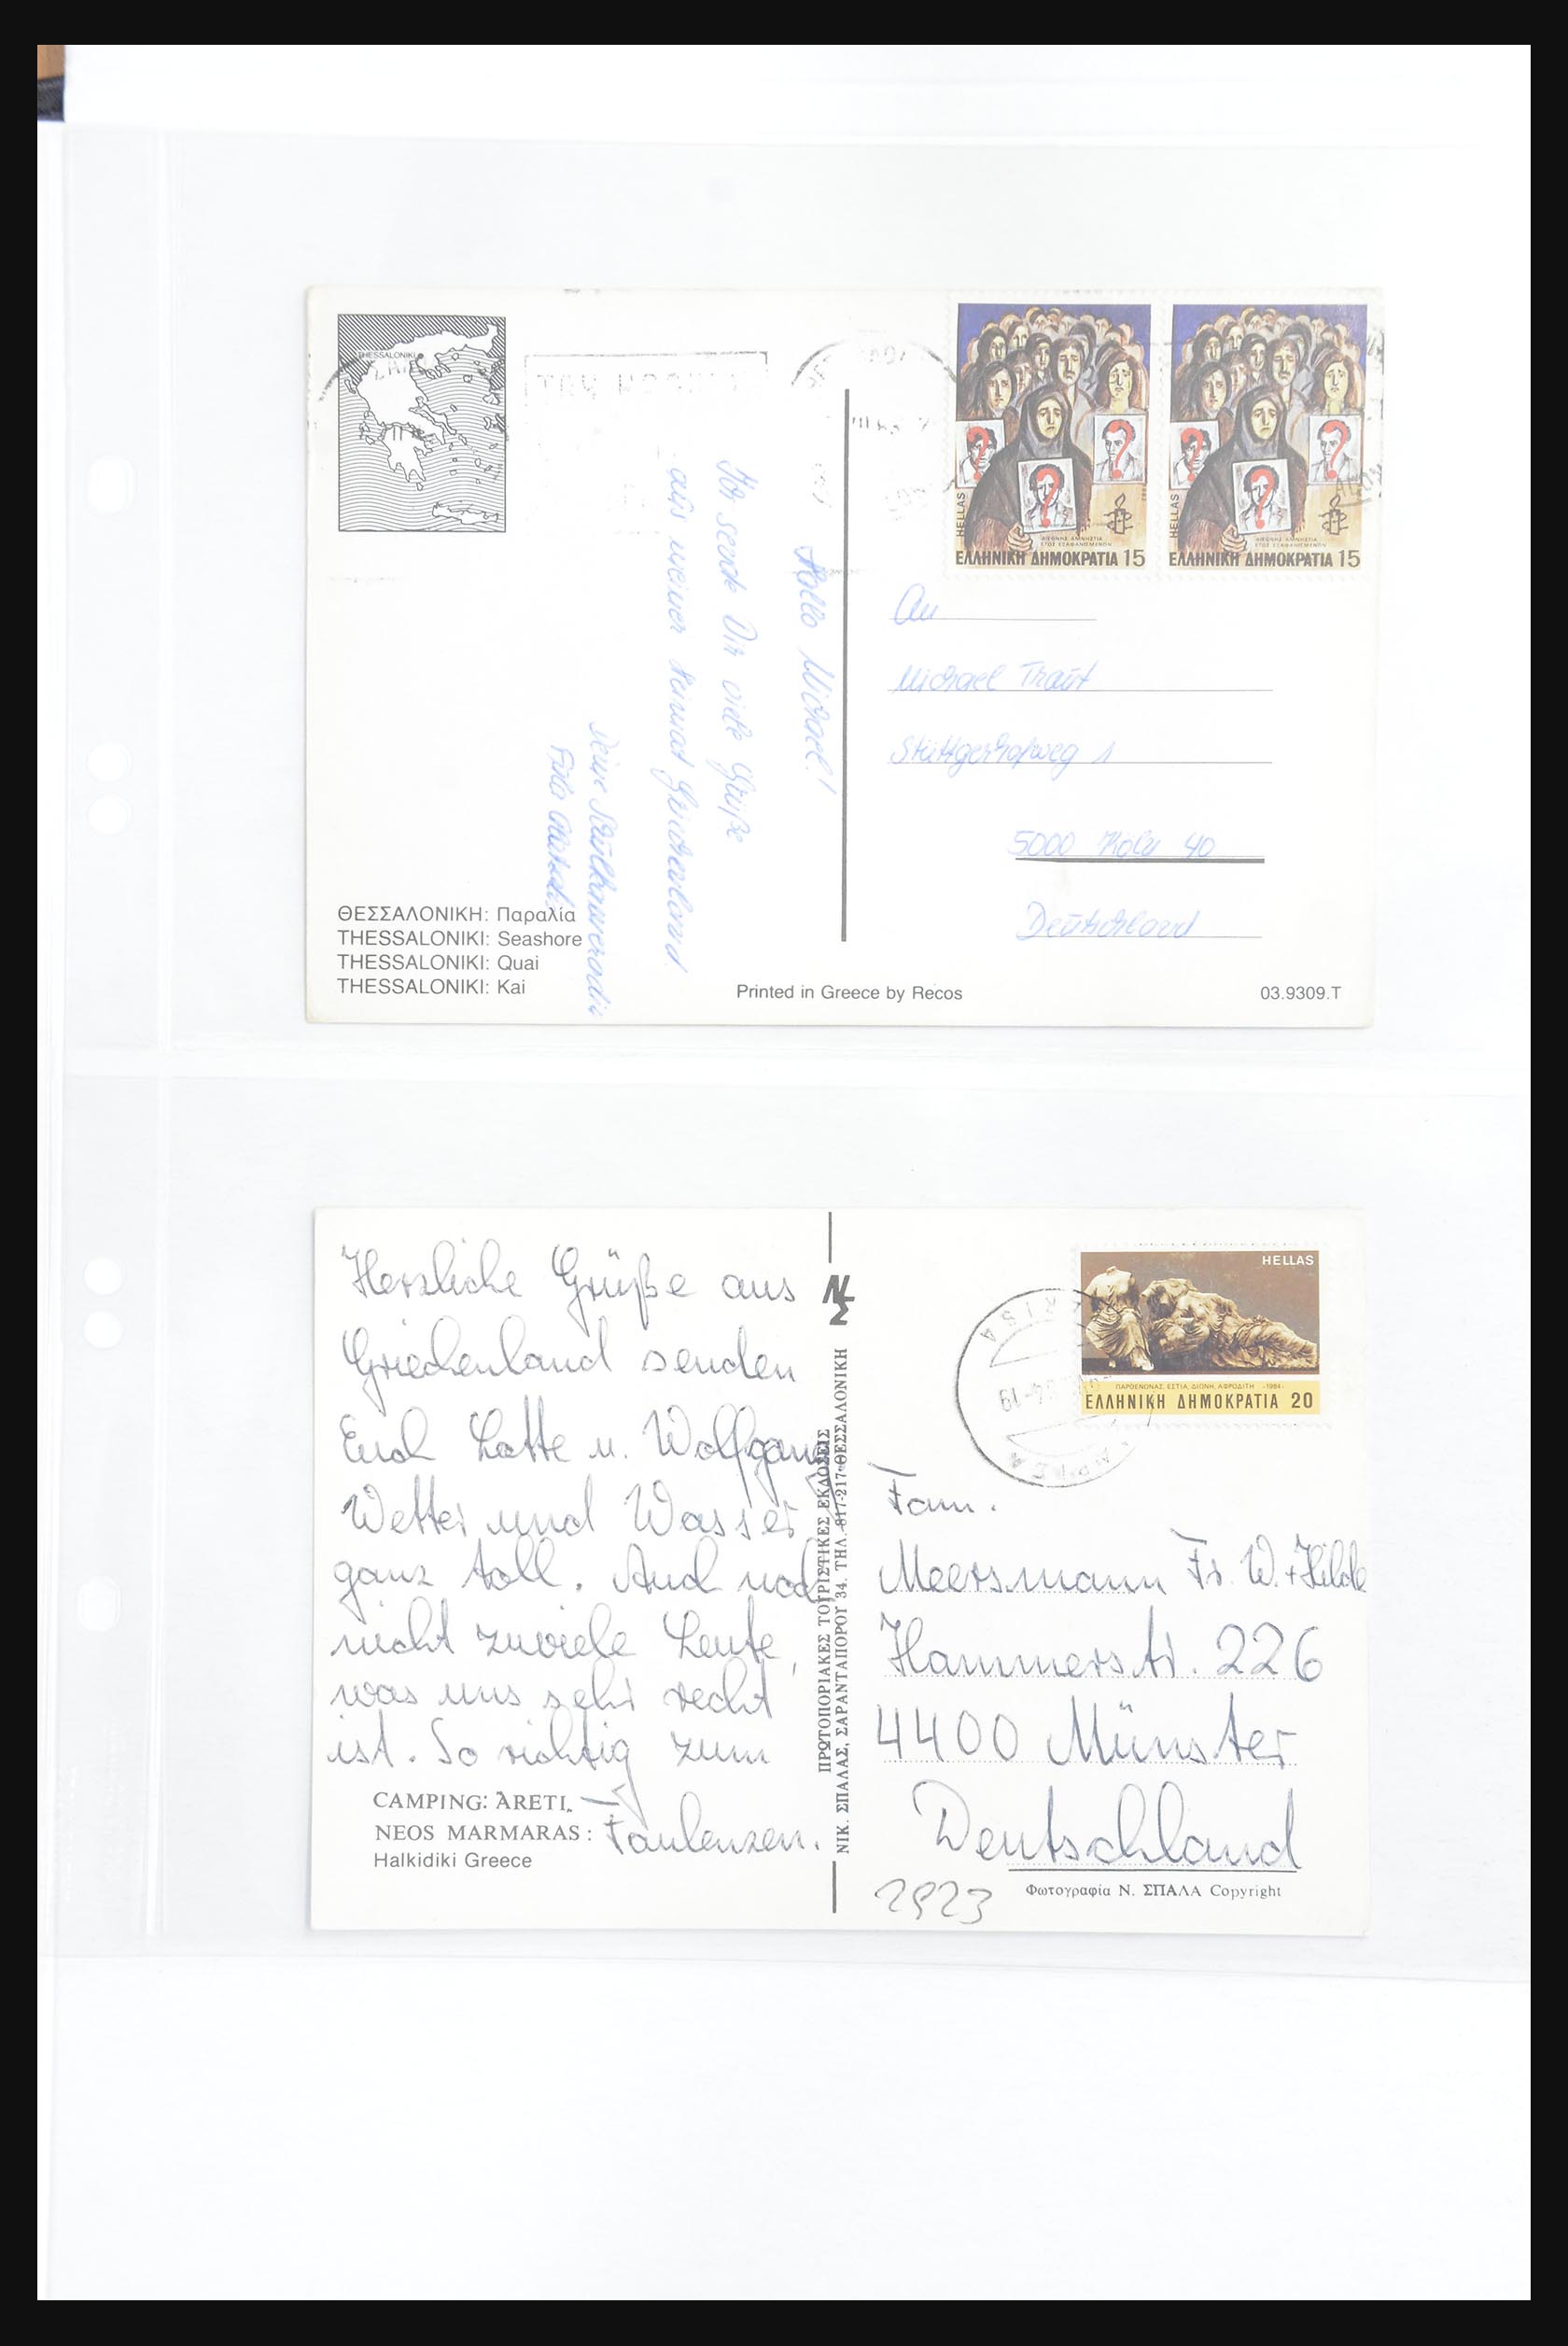 THESSALONIKI
HELLAS
ΔΙΕΘΝΗΣ ΑΜΝΗΣΤΙΑ
ΕΤΟΣ ΕΞΑΦΑΝΙΣΜΕΝΩΝ
ΕΛΛΗΝΙΚΗ ΔΗΜΟΚΡΑΤΙΑ 15
HELLAS
ΔΙΕΘΝΗΣ ΑΜΝΗΣΤΙΑ
ΕΤΟΣ ΕΞΑΦΑΝΙΣΜΕΝΩΝ
ΕΛΛΗΝΙΚΗ ΔΗΜΟΚΡΑΤΙΑ 15
Hallo Michael!
Ich sende Dir viele Grüße
aus meiner Heimat Griechenland.
Deine
An
Michael Traut
Stüttgerhofweg 1
5000 Köln 40
Deutschland
ΘΕΣΣΑΛΟΝΙΚΗ: Παραλία
THESSALONIKI: Seashore
THESSALONIKI: Quai
THESSALONIKI: Kai
Printed in Greece by Recos
03.9309.T
Herzliche Grüße aus
Griechenland senden
Euch Lotte u. Wolfgang
Wetter und Wasser
ganz toll. Auch noch
nicht zuviele Leute,
was uns sehr recht
ist. So richtig zum
Faulenzen.
CAMPING: ARETI.
NEOS MARMARAS:
Halkidiki Greece
ΠΡΩΤΟΠΟΡΙΑΚΕΣ ΤΟΥΡΙΣΤΙΚΕΣ ΕΚΔΟΣΕΙΣ
ΝΙΚ. ΣΠΑΛΑΣ, ΣΑΡΑΝΤΑΠΟΡΟΥ 34. ΤΗΛ. 817-217 ΘΕΣΣΑΛΟΝΙΚΗ
HELLAS
ΠΑΡΘΕΝΩΝΑΣ, ΕΣΤΙΑ, ΔΙΩΝΗ, ΑΦΡΟΔΙΤΗ -1984-
ΕΛΛΗΝΙΚΗ ΔΗΜΟΚΡΑΤΙΑ 20
Fam.
Meersmann Fr. W. + Hilde
Hammerstr. 226
4400 Münster
Deutschland
Φωτογραφία Ν. ΣΠΑΛΑ Copyright
2923